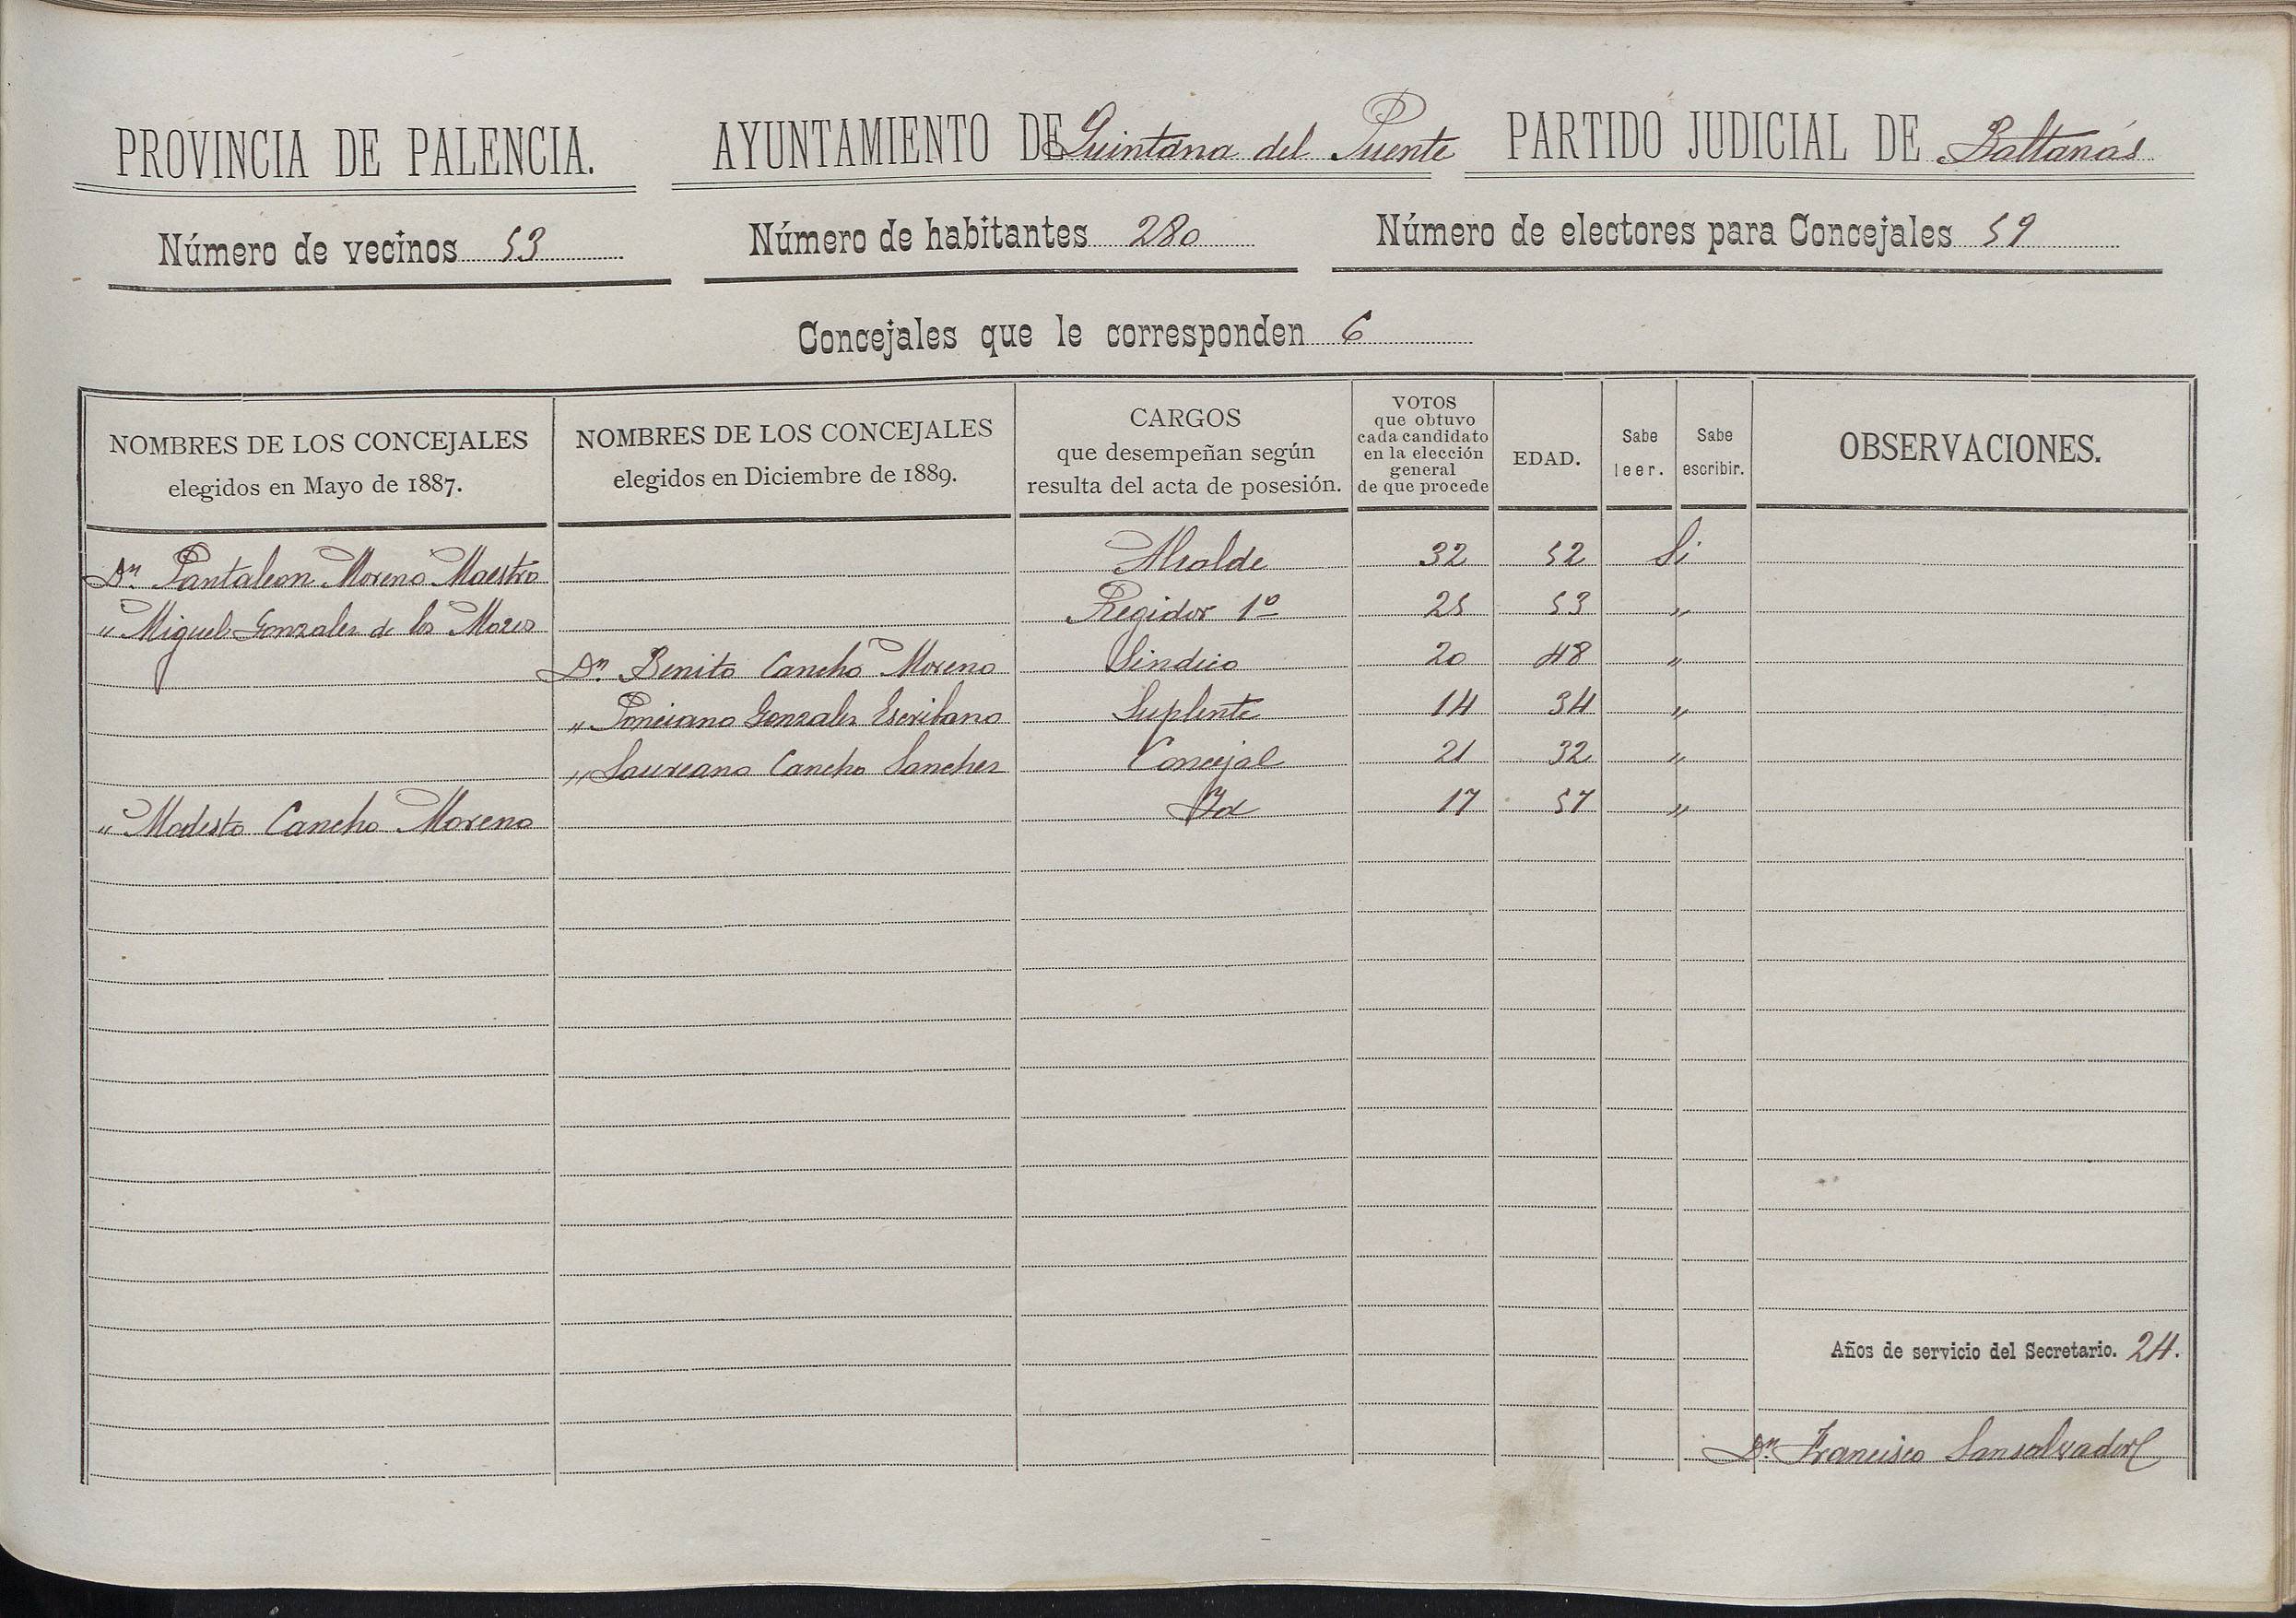 PROVINCIA DE PALENCIA. AYUNTAMIENTO DE Quintana del Puente PARTIDO JUDICIAL DE Baltanás
Número de vecinos 53 Número de habitantes 280 Número de electores para Concejales 59
Concejales que le corresponden 6
NOMBRES DE LOS CONCEJALES elegidos en Mayo de 1887. NOMBRES DE LOS CONCEJALES elegidos en Diciembre de 1889. CARGOS que desempeñan según resulta del acta de posesión. VOTOS que obtuvo cada candidato en la elección general de que procede EDAD. Sabe leer. Sabe escribir. OBSERVACIONES.
Dn. Pantaleon Moreno Maestro Alcalde 32 52 Si
" Miguel Gonzalez de los Mozos Regidor 1º 25 53 "
Dn. Benito Cancho Moreno Sindico 20 48 "
" Ponciano Gonzalez Escribano Suplente 14 34 "
" Laureano Cancho Sanchez Concejal 21 32 "
" Modesto Cancho Moreno Id 17 57 "
Años de servicio del Secretario. 24.
Dn. Francisco Sansalvador